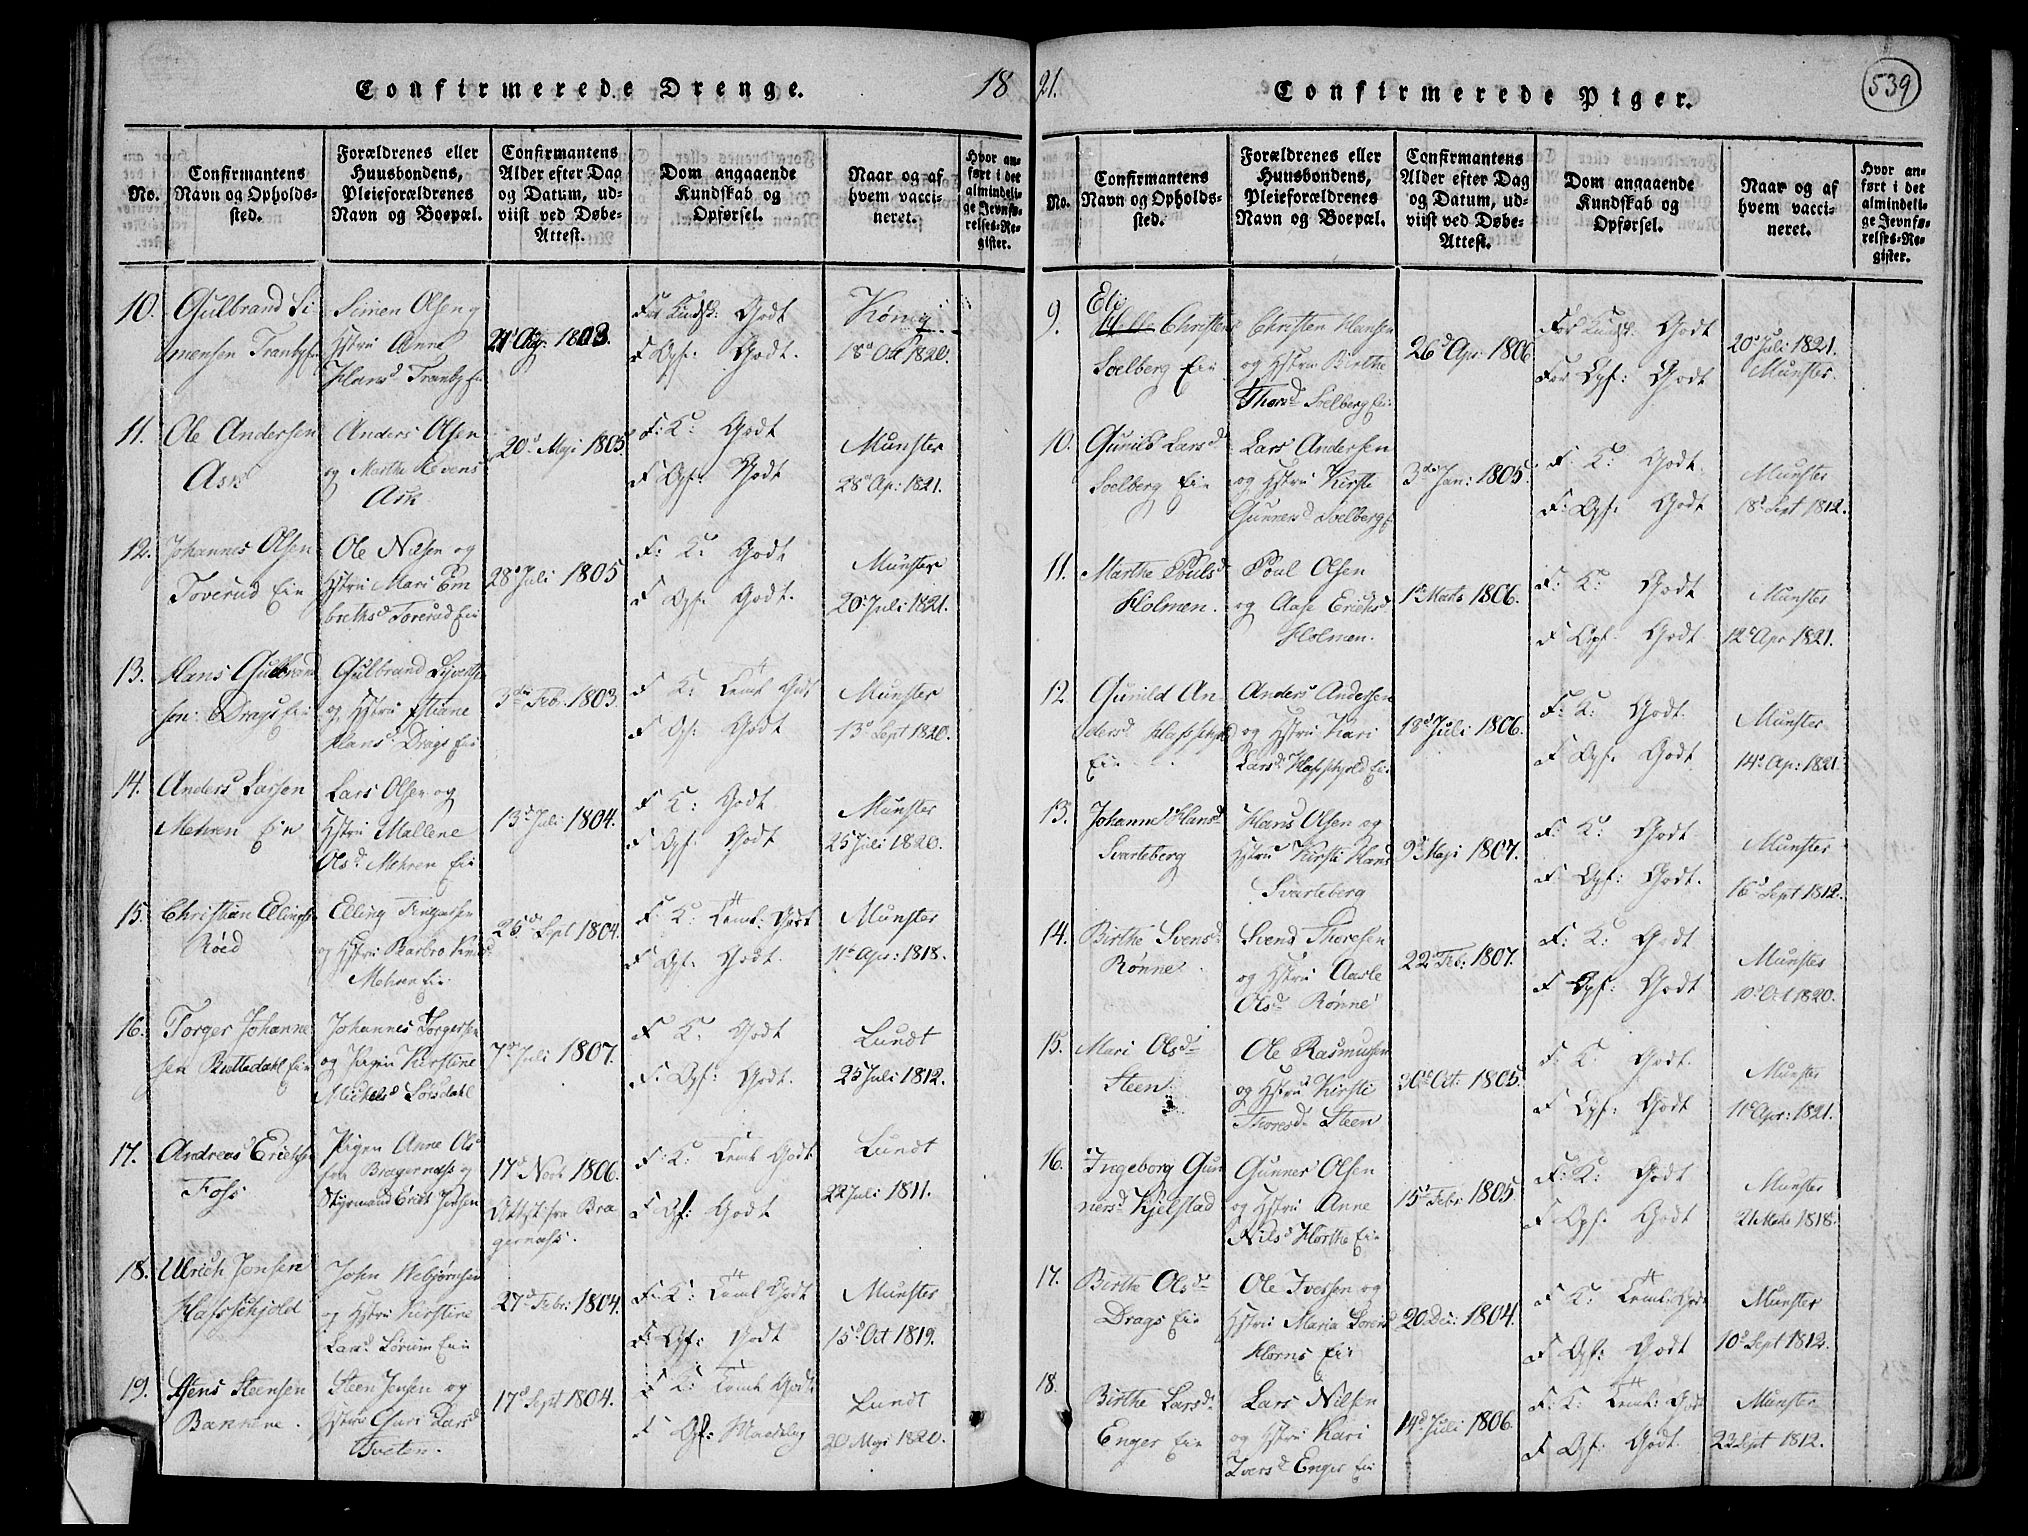 Confirmerede Drenge.
18
No.
Confirmantens
Navn og Opholds-
sted.
Forældrenes eller
Huusbondens,
Pleieforældrenes
Navn og Boepæl.
Confirmantens
Alder efter Dag
og Datum, ud-
viist ved Døbe-
Attest.
Dom angaaende
Kundskab og
Opførsel.
Naar og af
hvem vacci-
neret.
Hvor an-
ført i det
almindeli-
ge Jevnfø-
relses-Re-
gister.
10.
Gulbrand Si
mensen Tranby
Simen Olsen og
Hstru Anne
Hansd Tranby Ei
Aug. 1803.
For Kundsk: Godt
F. Opf: Godt.
König
18d Oct 1820.
11.
Ole Andersen
Ask
Anders Olsen
og Marthe Evens
Ask
20d Maji 1805
F: K: Godt
F Opf: Godt
Munster
28d Ap: 1821.
12.
Johannes Olsen
Toverud Ein
Ole Nilsen og
Hstru Mari Em
brethsd Toverud Ei
28d Juli 1805
F: K: Godt
F Opf: Godt.
Munster
20d Juli 1821.
13.
Hans Gulbrand
sen Drags Ei
Gulbrand
og Hstru
Hansd Drags Ei
3die Feb. 1803.
F K: Teml Godt
F Opf: Godt
Munster
13d Sept 1820.
14.
Anders Larsen
Mehren Ein
Lars Olsen og
Hstru Mallene
Olsd Mehren Ei
13d Juli 1804.
F K: Godt
F Opf: Godt
Munster
25 Juli 1820.
15.
Christian Ellings
Röed
Elling
og Hstru Barbro
Mehren Ei
25de Sept 1804.
F. K: Teml: Godt
F Opf. Godt.
Munster
11d Apr: 1818.
16.
Torger Johanne
sen Ei
Johannes Torgersen
og Pigen Kirstine
Mickelsd
7d Juli 1807.
F K: Godt
F: Opf: Godt.
Lundt
25 Juli 1812.
17.
Andreas Ericksen
Foss
Pigen Anne Ols
fra Bragernæss og
Styrmand Erick Jensen
17d Novb 1806.
Attest fra Bra
gernæss.
F: K: Teml Godt
F Opf: Godt
Lundt
22 Juli 1811.
18.
Ulrich Jonsen
Hafsskjold
John Webjørnsen
og Hstru Kirstine
Larsd Sørum Ei
27d Febr: 1804.
F. K: Teml Godt
F. Opf: Godt
Munster
15d Oct 1819.
19.
Steensen
Bakkene.
Steen Jensen og
Hstru Guri Larsd
Tveten.
17d Sept 1804.
F. K: Teml Godt
F Opf: Maadelig
Lundt
20 Maji 1820.
21.
Confirmerede Piger.
539
No.
Confirmantens
Navn og Opholds-
sted.
Forældrenes eller
Huusbondens,
Pleieforældrenes
Navn og Boepæl.
Confirmantens
Alder efter Dag
og Datum, ud-
viist ved Døbe-
Attest.
Dom angaaende
Kundskab og
Opførsel.
Naar og af
hvem vacci-
neret.
Hvor an-
ført i det
almindeli-
ge Jevnfø-
relses-Re-
gister.
9.
Eli
Christens
Solberg Ein
Christen Hansen
og Hstru Birthe
Thorsd Solberg Ei
26d Apr 1806
For Kundsk: Godt
For Opf: Godt
20d Juli 1821.
Munster.
10.
Gunild Larsd
Solberg Ein
Lars Andersen
og Hstru Kirsti
Gunnersd Solberg
3die Jan: 1805.
F. K: Godt.
F: Opf. Godt
Munster
18d Sept 1812.
11.
Marthe Poulsd
Holmen.
Poul Olsen
og Aase Ericksd
Holmen.
1de Marts 1806.
F: K: Godt
F Opf. Godt
Munster
12d Apr 1821.
12
Gunild An
dersd Hafsskjold
Ein
Anders Andersen
og Hstru Kari
Larsd Hafsskjold Ei
18d Juli 1806.
F: K: Godt.
F Opf: Godt
Munster
14d Ap: 1821
13.
Johanne Hansd
Svarteberg
Hans Olsen og
Hstru Kirsti Hans
Svarteberg
9d Maji 1807.
F. K: Godt
F: Opf: Godt.
Munster
16d Sept 1812.
14.
Birthe Svensd
Rönne
Svend Thoresen
og Hstru Aasle
Olsd Rönne
22d Feb: 1807.
F. K: Godt
F Opf: Godt
Munster
10d Oct 1820.
15.
Mari Olsd
Steen
Ole Rasmusen
og Hstru Kirsti
Thoresd Steen
30d Oct: 1805.
F. K: Godt.
F Opf: Godt
Munster
11d Apr: 1821.
16.
Ingeborg Gun
nersd Kjelstad
Gunner Olsen
og Hstru Anne
Nilsd Horthe Ei
15d Febr 1805
F: K: Godt
F Opf: Godt
Munster
21 Marts 1818.
17.
Birthe Olsd
Drags Ein
Ole Iversen og
Hstru Maria Sörens
Horns Ei
20 Dec: 1804.
F K: Teml: Godt
F Opf: Godt
Munster
10d Sept 1812.
18.
Birthe Larsd
Enger Ein
Lars Nilsen
og Hstru Kari
Iversd Enger Ei
14d Juli 1806.
F. K: Teml: Godt
F Opf: Godt.
Munster
23 Sept 1812.